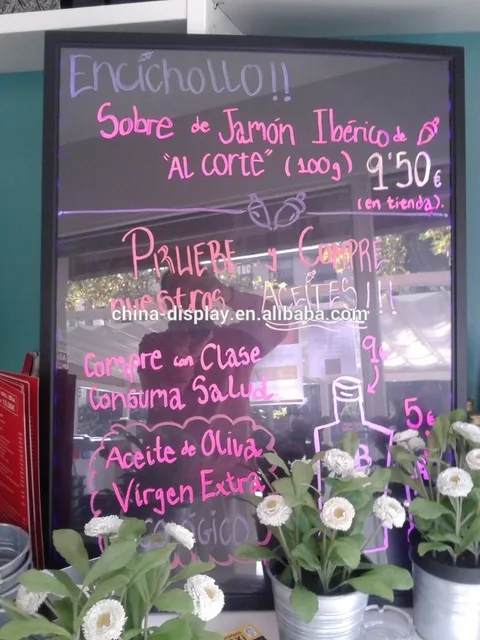 Encichollo!!
Sobre de Jamón Ibérico de
"AL CORTE" (100g) 9'50€
(en tienda).
PRUEBE y COMPRE
nuestros ACEITES!!!
china-display.en.alibaba.com
Compre con Clase 9€
Consuma Salud
5€
Aceite de Oliva
Virgen Extra
B